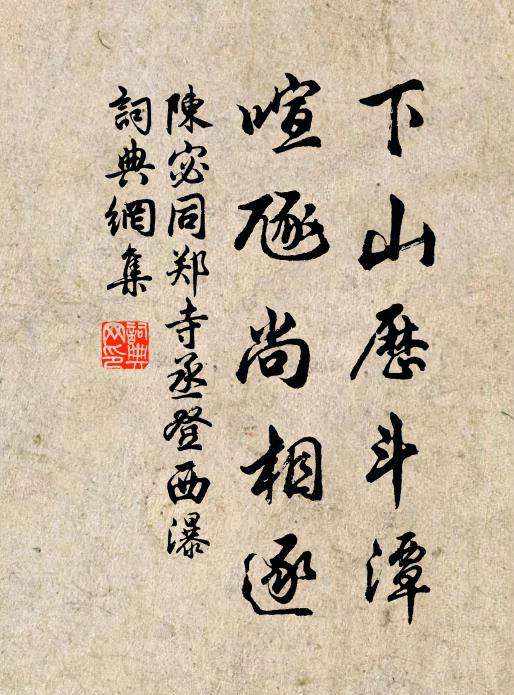 下山歷斗潭
喧豗尚相逐
陳宓同郑寺丞登西瀑
詞典網集
詞典網印